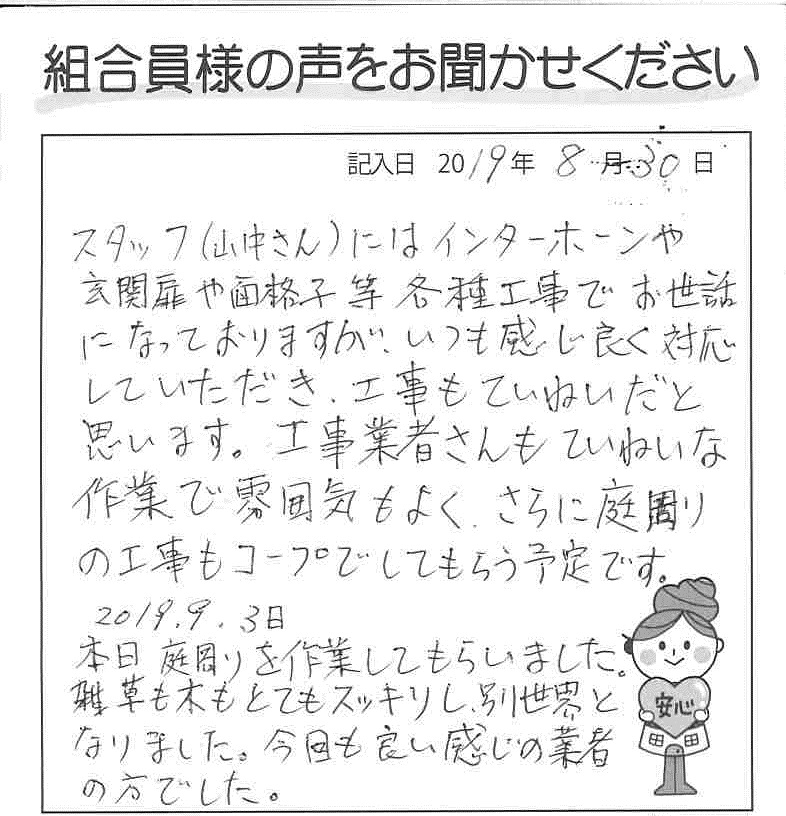 組合員様の声をお聞かせください
記入日 2019年 8月30日
スタッフ(山中さん)にはインターホーンや
玄関扉や面格子等各種工事でお世話
になっておりますが、いつも感じ良く対応
していただき、工事もていねいだと
思います。工事業者さんもていねいな
作業で雰囲気もよく、さらに庭周り
の工事もコープでしてもらう予定です。
2019.9.3日
本日庭周りを作業してもらいました。
雑草も木もとてもスッキリし、別世界と
なりました。今回も良い感じの業者
の方でした。
安心